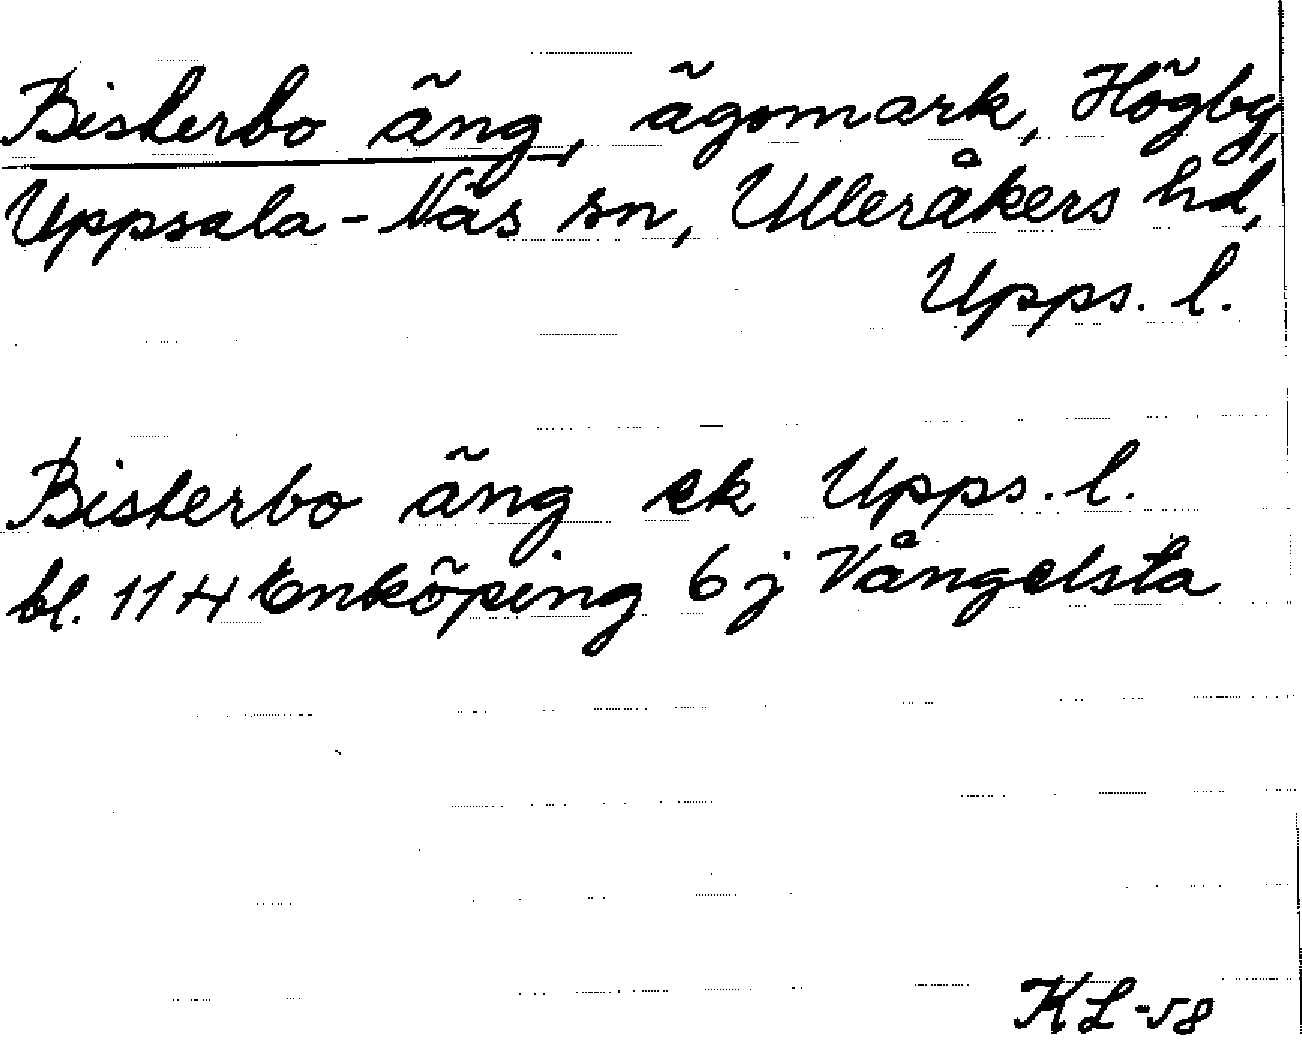 Bisterbo äng, ägomark, Högby,
Uppsala-Näs sn, Ulleråkers hd,
Upps. l.
Bisterbo äng ek Upps. l.
bl. 11 H Enköping 6 j Vångelsta
KL-58